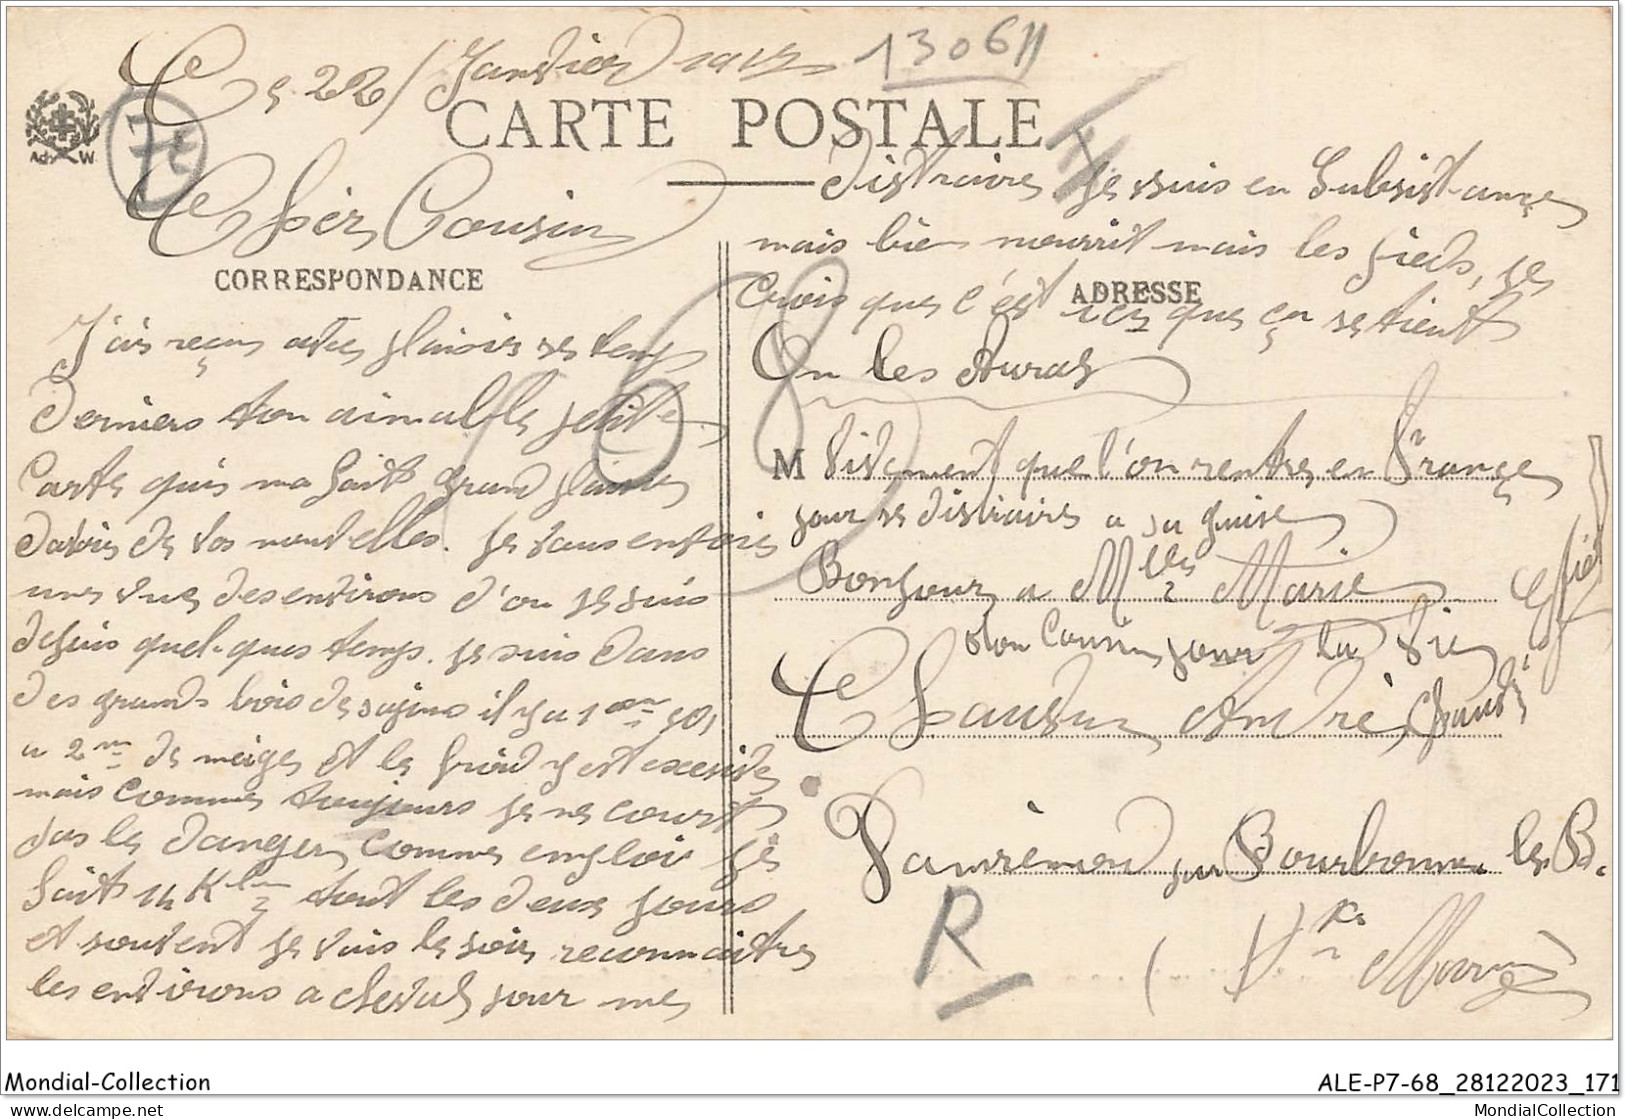 Ce 22 / Janvier 191
13061
CARTE POSTALE
Ad W
Cher Cousin
CORRESPONDANCE
J'ais reçus avec plaisir ses temps
derniers ton aimable petite
Carte quis ma fait grand plaisir
davoir de vos nouvelles. je vous envois
une vue des environs d'ou je suis
depuis quelques temps. je suis dans
des grands bois de sapins il y a 1m 50
a 2m de neige et le froid y est excesive
mais comme toujours je ne court
pas le danger comme emploi je
fait 14 Klm tout les deux jours
et souvent je vais le soir reconnaitre
les environs a cheval pour me
distraire je suis en Subsistance
mais bien nourrit mais les pieds, je
Crois que c'est ici que ça se tient
On les Auras
ADRESSE
M Vivement que l'on rentre en France
pour se distraire a sa guise
Bonjour a Mlle Marie
ton Cousin pour la Vie
André
Parrémond par Bourbonne les B.
R
Hte Marne
Mondial-Collection
ALE-P7-68_28122023_171
www.delcampe.net
MondialCollection